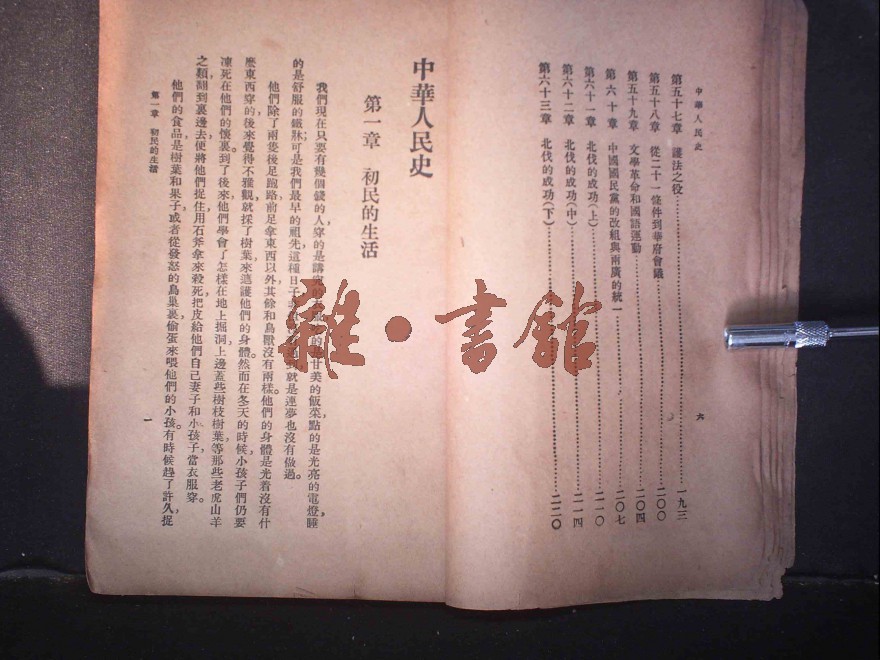 中華人民史
第五十七章　護法之役……一九三
第五十八章　從二十一條件到華府會議……二〇〇
第五十九章　文學革命和國語運動……二〇四
第六十章　中國國民黨的改組與兩廣的統一……二〇七
第六十一章　北伐的成功（上）……二一〇
第六十二章　北伐的成功（中）……二一四
第六十三章　北伐的成功（下）……二二〇
六
中華人民史
第一章　初民的生活
我們現在只要有幾個錢的人，穿的是講究的衣服，吃的是甘美的飯菜，點的是光亮的電燈，睡
的是舒服的鐵牀；可是我們最早的祖先，這種日子就是連夢也沒有做過。
他們除了兩隻後足跑路，前足拿東西以外，其餘和鳥獸沒有兩樣。他們的身體是光着沒有什
麽東西穿的，後來覺得不雅觀，就採了樹葉來遮護他們的身體。然而在冬天的時候，小孩子們仍要
凍死在他們的懷裏。到了後來，他們學會了怎樣在地上掘洞，上邊蓋些樹枝樹葉等，那些老虎山羊
之類翻到裏邊去，便將他們捉住，用石斧拿來殺死，把皮給他們自己妻子和小孩子當衣服穿。
他們的食品是樹葉和果子，或者從發怒的鳥巢裏偷蛋來喂他們的小孩。有時候趕了許久，捉
第一章　初民的生活
一
雜·書館